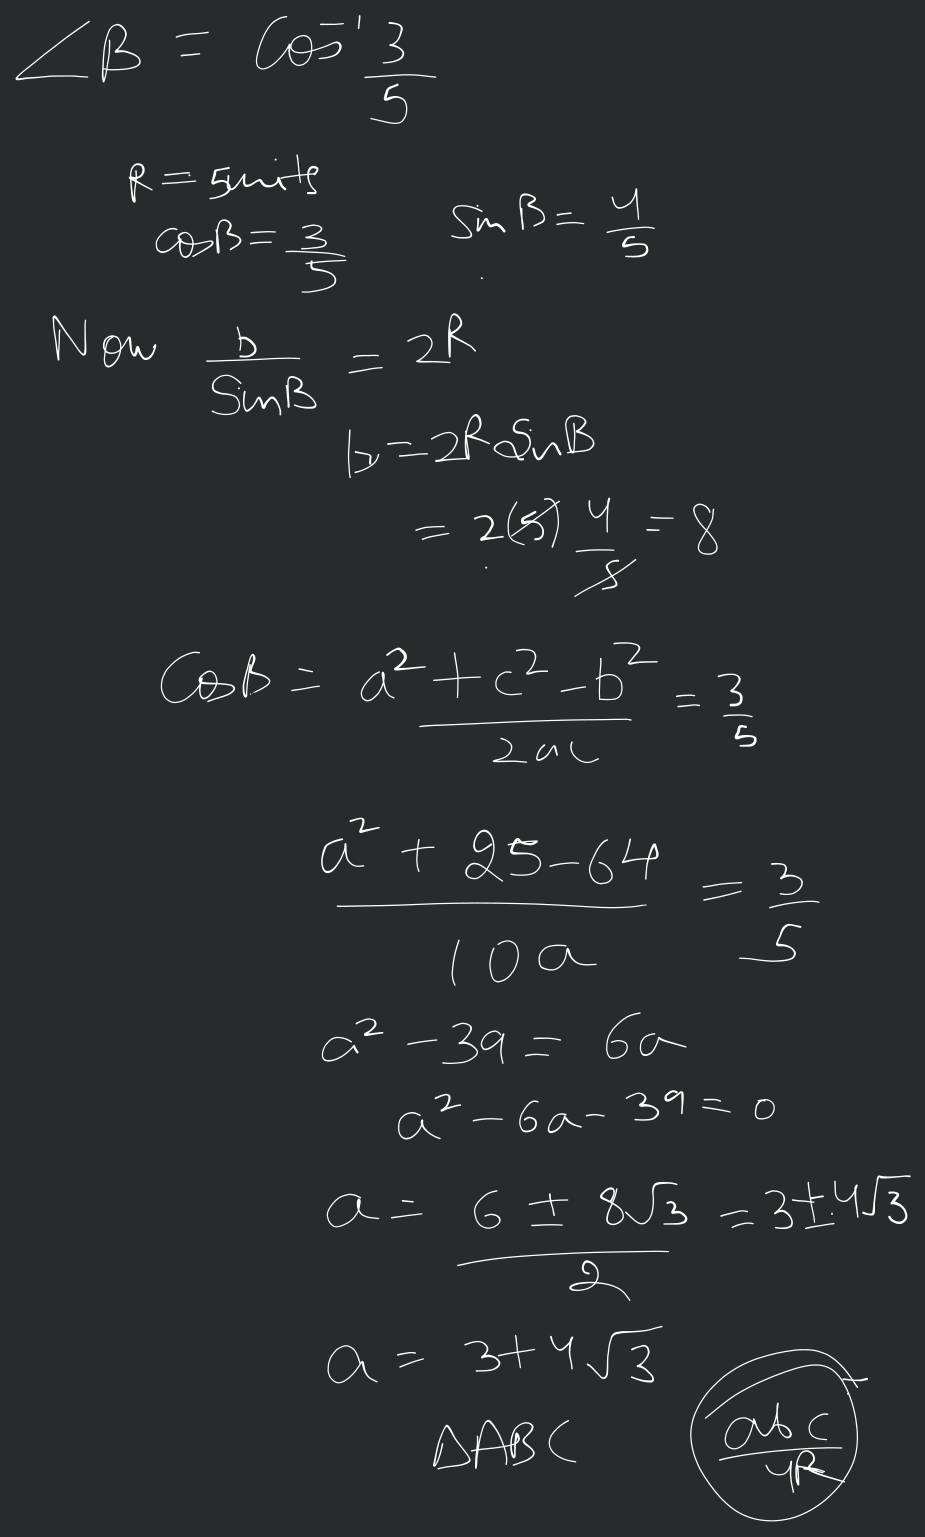 ∠B = Cos⁻¹ 3/5
R = 5units
cosB = 3/5 Sin B = 4/5
Now b/SinB = 2R
b = 2R SinB
= 2(5) 4/5 = 8
CosB = a² + c² - b² / 2ac = 3/5
a² + 25 - 64 / 10a = 3/5
a² - 39 = 6a
a² - 6a - 39 = 0
a = 6 ± 8√3 / 2 = 3 ± 4√3
a = 3 + 4√3
ΔABC abc/4R